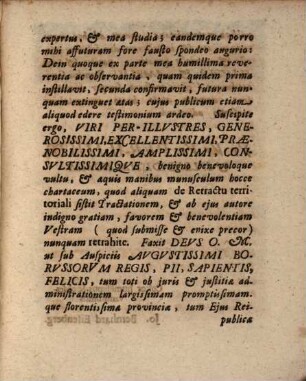 expertus, & mea studia; eandemque porro
mihi affuturam fore fausto spondeo augurio:
Dein quoque ex parte mea humillima reve-
rentia ac observantia, quam quidem prima
instillavit, secunda confirmavit, futura nun-
quam extinguet ætas; cujus publicum etiam
aliquod edere testimonium ardeo. Suscipite
ergo, VIRI PER-ILLVSTRES, GENE-
ROSISSIMI, EXCELLENTISSIMI, PRÆ-
NOBILISSIMI, AMPLISSIMI, CON-
SVLTISSIMIQVE, benigno benevoloque
vultu, & æquis manibus munusculum hocce
chartaceum, quod aliquam de Retractu terri-
toriali sistit Tractationem, & ab ejus autore
indigno gratiam, favorem & benevolentiam
Vestram (quod submisse & enixe precor)
nunquam retrahite. Faxit DEVS O. M.
ut sub Auspiciis AVGVSTISSIMI BO-
RVSSORVM REGIS, PII, SAPIENTIS,
FELICIS, tum toti ob juris & justitiæ ad-
ministrationem largissimam promptissimam-
que florentissimæ provinciæ, tum Ejus Rei-
publicæ